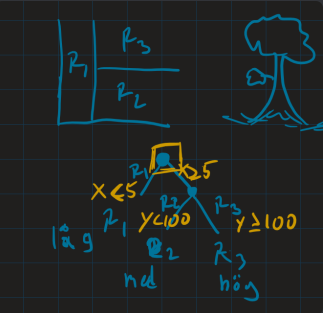 R3
R1
R2
R1 X≥5
X<5
R2 R3
R1 Y<100 Y≥100
låg R2 R3
med hög